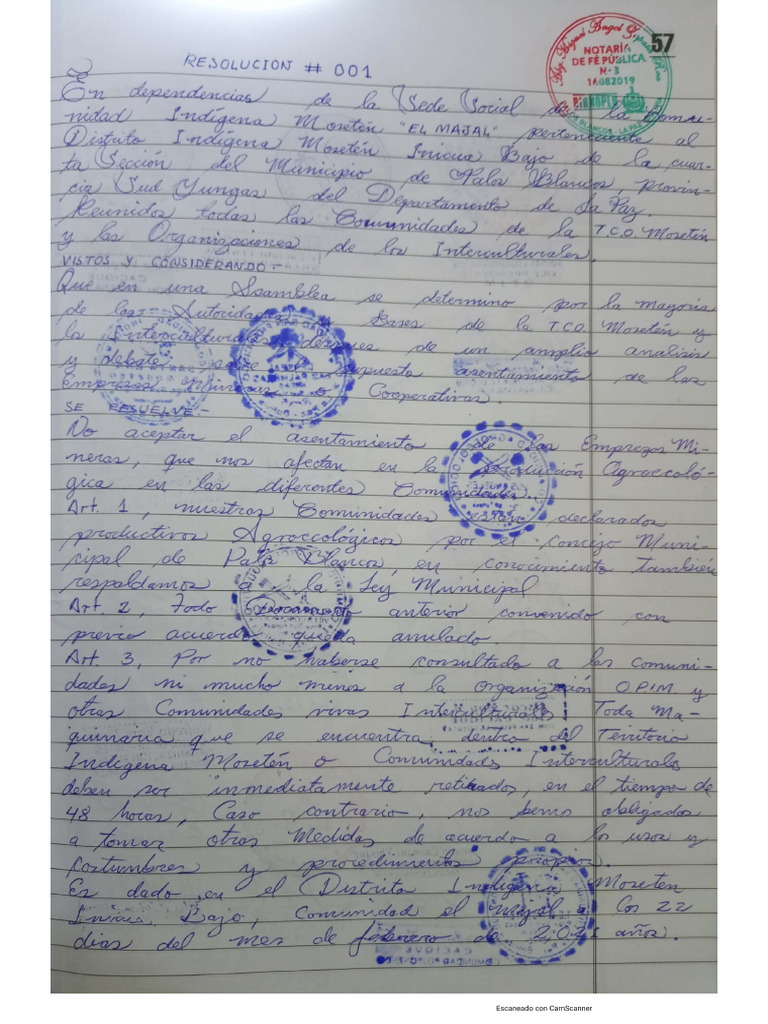 57
NOTARÍA
DE FE PÚBLICA
N° 3
RESOLUCION # 001
En dependencias de la Sede Social de la Comu-
nidad Indígena Mosetén "EL MAJAL" perteneciente al
Distrito Indígena Mosetén Inicua Bajo de la cuar-
ta Sección del Municipio de Palos Blancos, provin-
cia Sud Yungas del Departamento de La Paz.
Reunidos todas las Comunidades de la T.C.O. Mosetén
y las Organizaciones de los Interculturales.
VISTOS Y CONSIDERANDO-
Que en una Asamblea se determino por la mayoria
de las Autoridades y Bases de la T.C.O. Mosetén y
los Interculturales despues de un amplio analisis
y debate sobre supuesto asentamiento de las
Empresas Mineras o Cooperativas.
SE RESUELVE-
No aceptar el asentamiento de las Empresas Mi-
neras, que nos afectan en la Producción Agroecoló-
gica en las diferentes Comunidades.
Art. 1, nuestras Comunidades están declarados
productivos Agroecológicos por el concejo Muni-
cipal de Palos Blancos, en conocimiento también
respaldamos a la Ley Municipal
Art. 2, Todo Documento anterior convenido con
previo acuerdo queda anulado.
Art. 3, Por no haberse consultado a las comuni-
dades ni mucho menos a la organización O.P.I.M. y
otras Comunidades vivas Interculturales Toda Ma-
quinaria que se encuentra, dentro del Territorio
Indígena Mosetén o Comunidades Interculturales
deben ser inmediatamente retirados, en el tiempo de
48 horas, Caso contrario, nos bemos obligados
a tomar otras Medidas de acuerdo a los usos y
costumbres y procedimientos propios.
Es dado en el Distrito Indígena Mosetén
Inicua Bajo, Comunidad el Majal a Los 22
dias del mes de febrero de 2021 años.
Escaneado con CamScanner